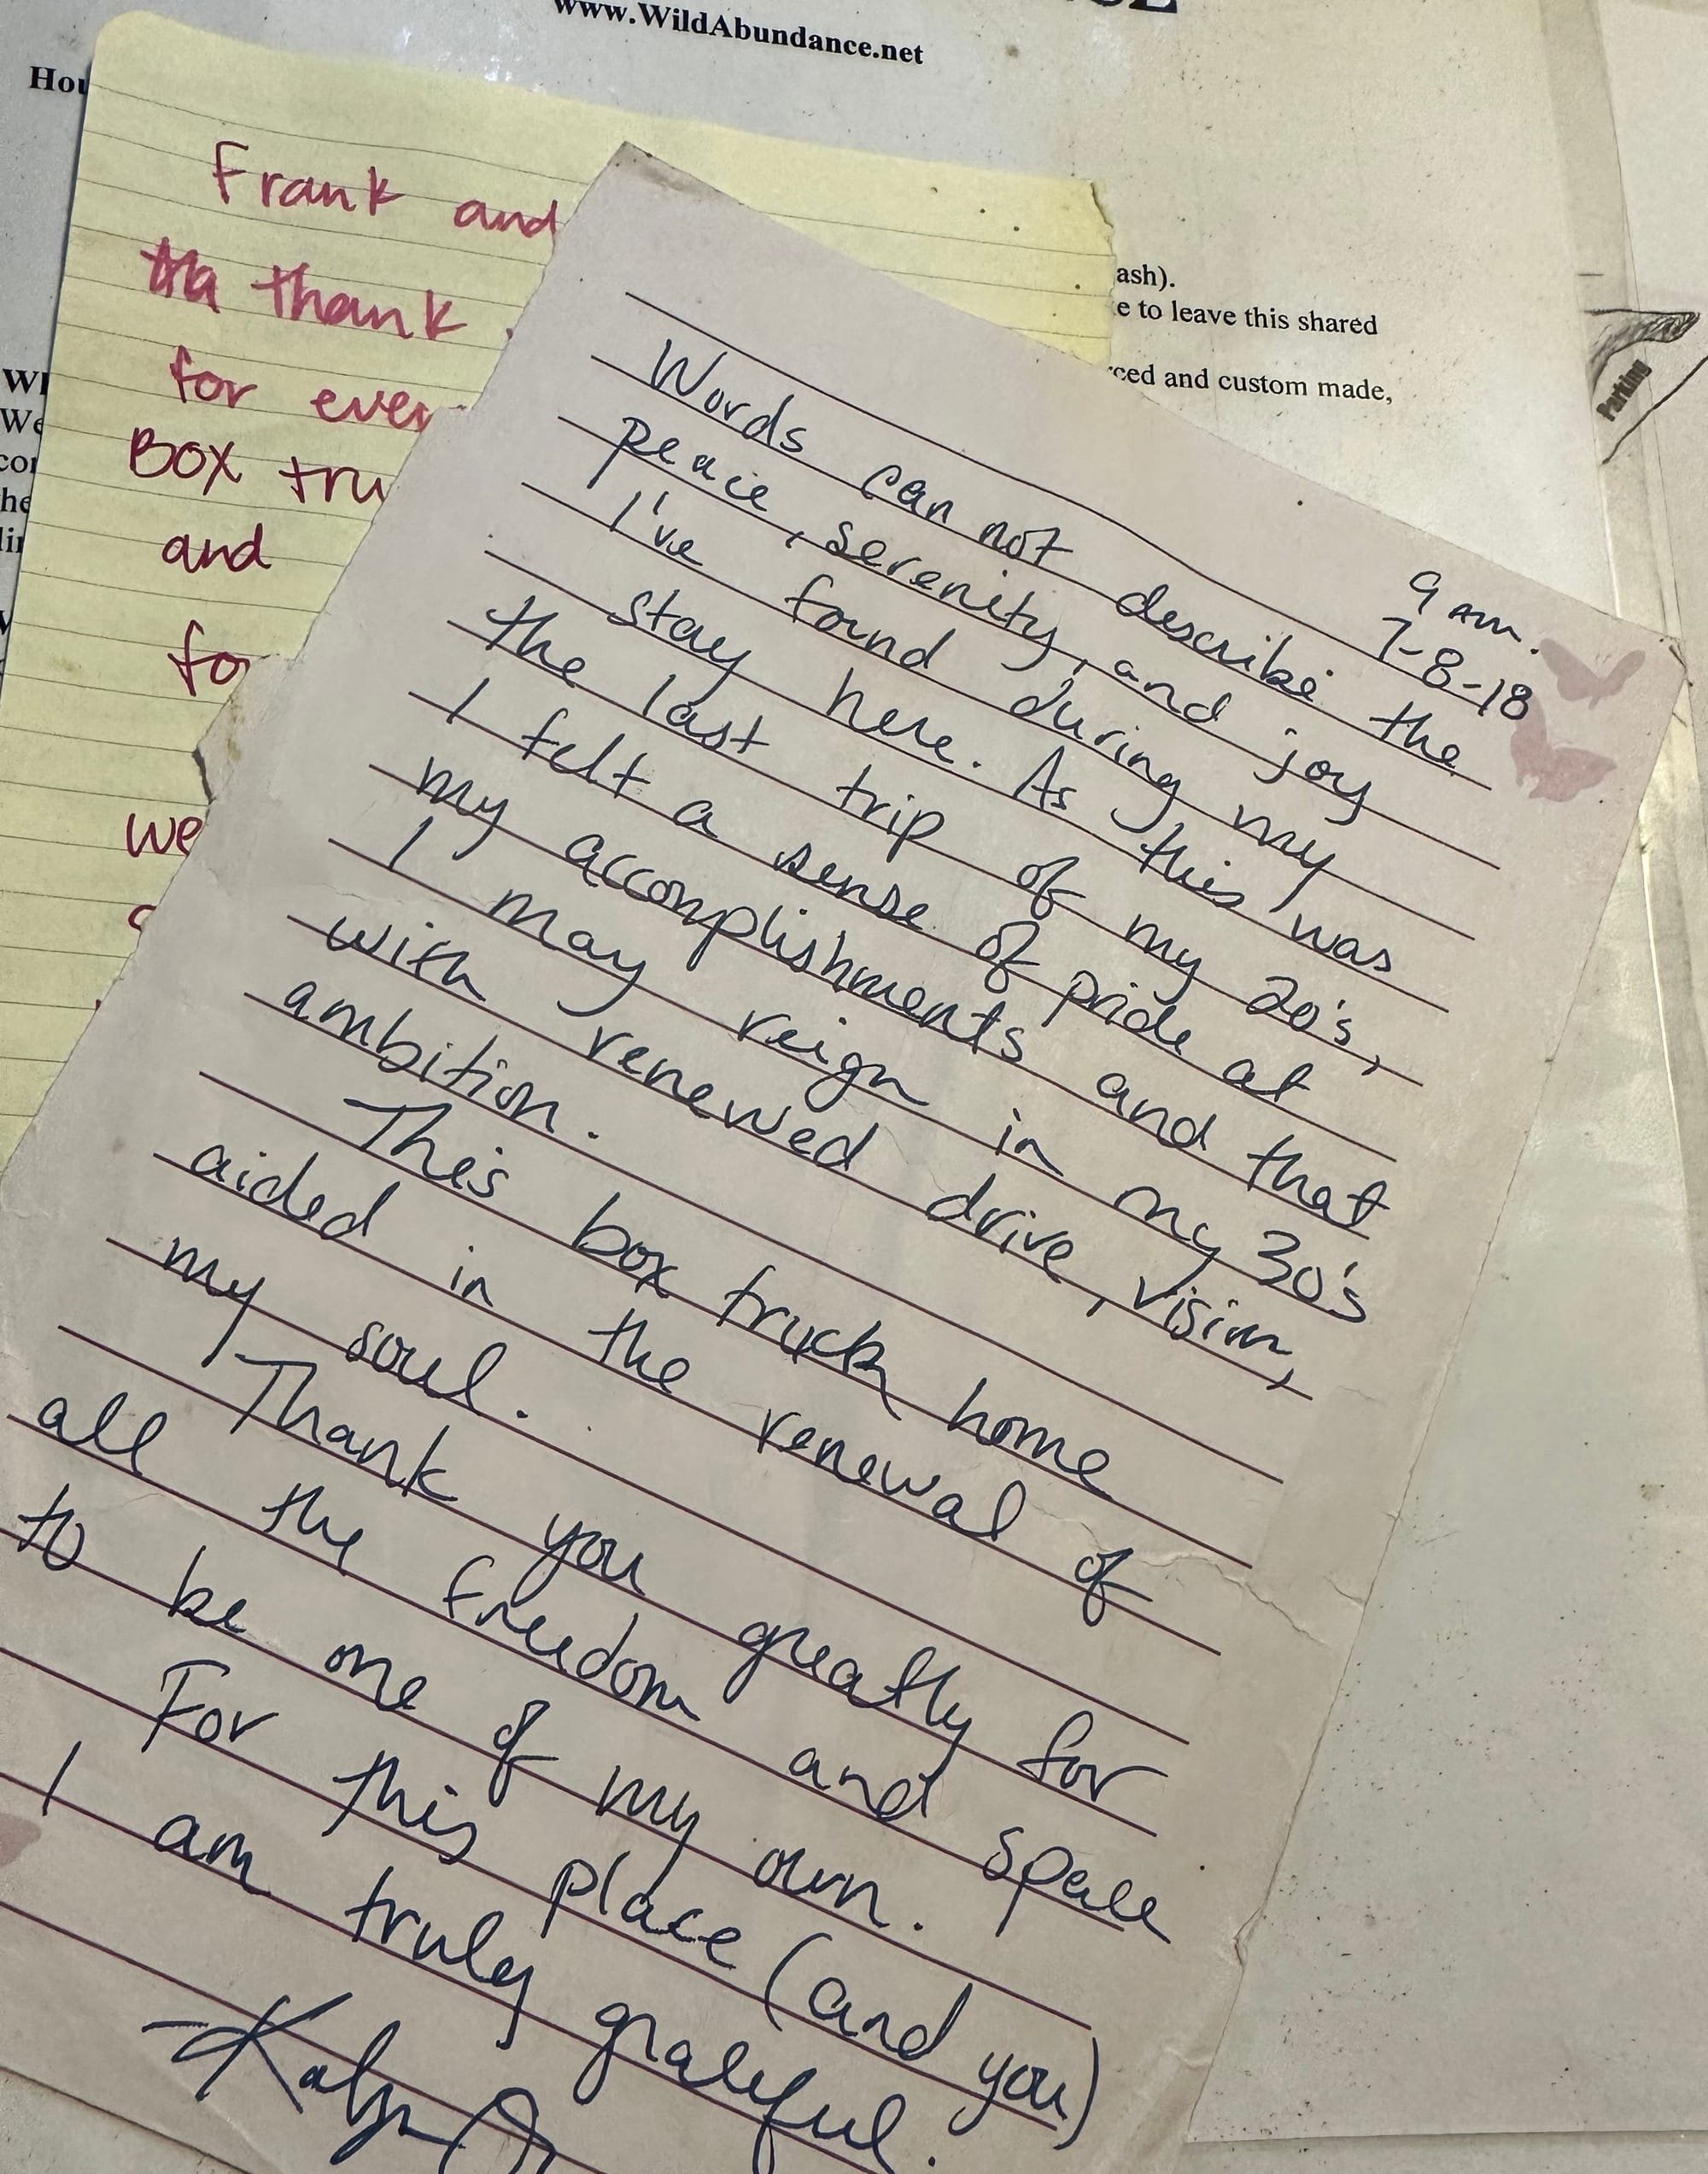 www.WildAbundance.net
Frank and
thank
for ever
Box tru
and
for
we
ash).
e to leave this shared
rced and custom made,
Parking
9 am.
7-8-18
Words can not describe the
peace, serenity, and joy
I've found during my
stay here. As this was
the last trip of my 20's,
I felt a sense of pride at
my accomplishments and that
I may reign in my 30's
with renewed drive, vision,
ambition.
This box truck home
aided in the renewal of
my soul.
Thank you greatly for
all the freedom and space
to be one of my own.
For this place (and you)
I am truly grateful.